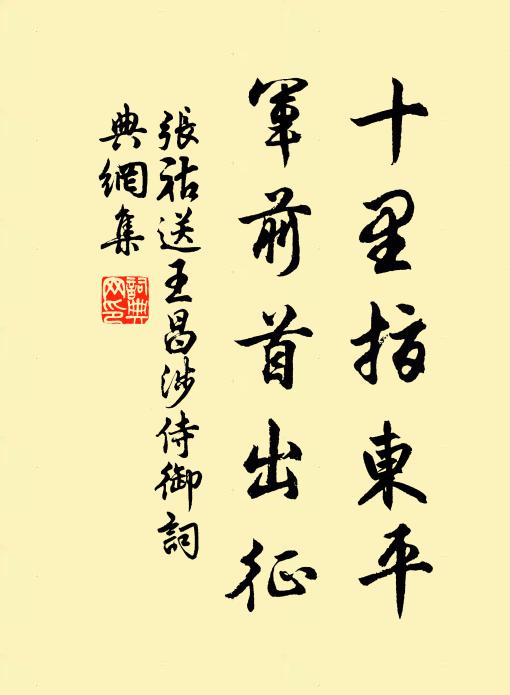 十里指東平
軍前首出征
張祜送王昌涉侍御詞
典網集
詞典網印